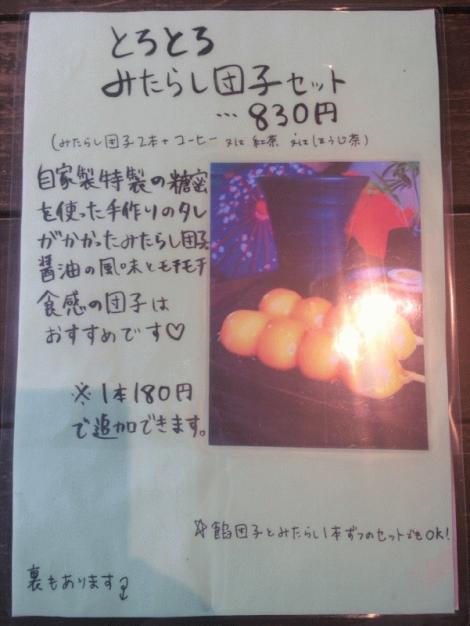 とろとろ
みたらし団子セット
… 830円
(みたらし団子2本+コーヒー 又は 紅茶 又は ほうじ茶)
自家製特製の糖蜜
を使った手作りのタレ
がかかったみたらし団子
醤油の風味とモチモチ
食感の団子は
おすすめです♡
※1本180円
で追加できます。
☆餡団子とみたらし1本ずつのセットでもOK!
裏もあります